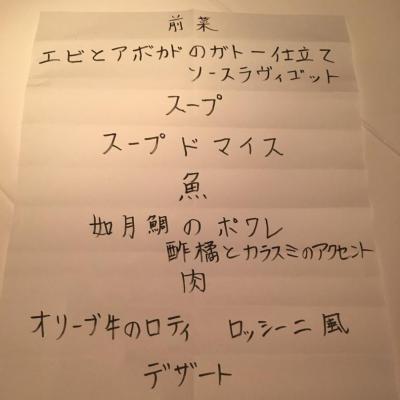 前菜
エビとアボカドのガトー仕立て
ソースラヴィゴット
スープ
スープドマイス
魚
如月鯛のポワレ
酢橘とカラスミのアクセント
肉
オリーブ牛のロティ ロッシーニ風
デザート